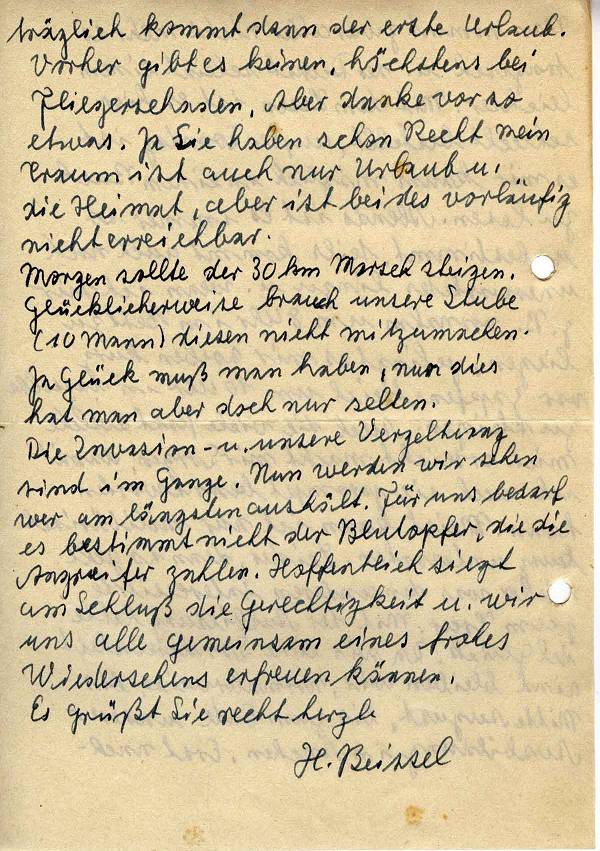 träglich kommt dann der erste Urlaub.
Vorher gibt es keinen, höchstens bei
Fliegerschaden, Aber danke vor so
etwas. Ja Sie haben schon Recht mein
Traum ist auch nur Urlaub u.
die Heimat, aber ist beides vorläufig
nicht erreichbar.
Morgen sollte der 30 km Marsch steigen.
Glücklicherweise brauch unsere Stube
(10 Mann) diesen nicht mitzumachen.
Ja Glück muß man haben, nur dies
hat man aber doch nur selten.
Die Invasion - u. unsere Vergeltung
sind im Gange. Nun werden wir sehen
wer am längsten aushält. Für uns bedarf
es bestimmt nicht der Blutopfer, die die
Angreifer zahlen. Hoffentlich siegt
am Schluß die Gerechtigkeit u. wir
uns alle gemeinsam eines frohes
Wiedersehens erfreuen können.
Es grüßt Sie recht herzl.
H. Beissel